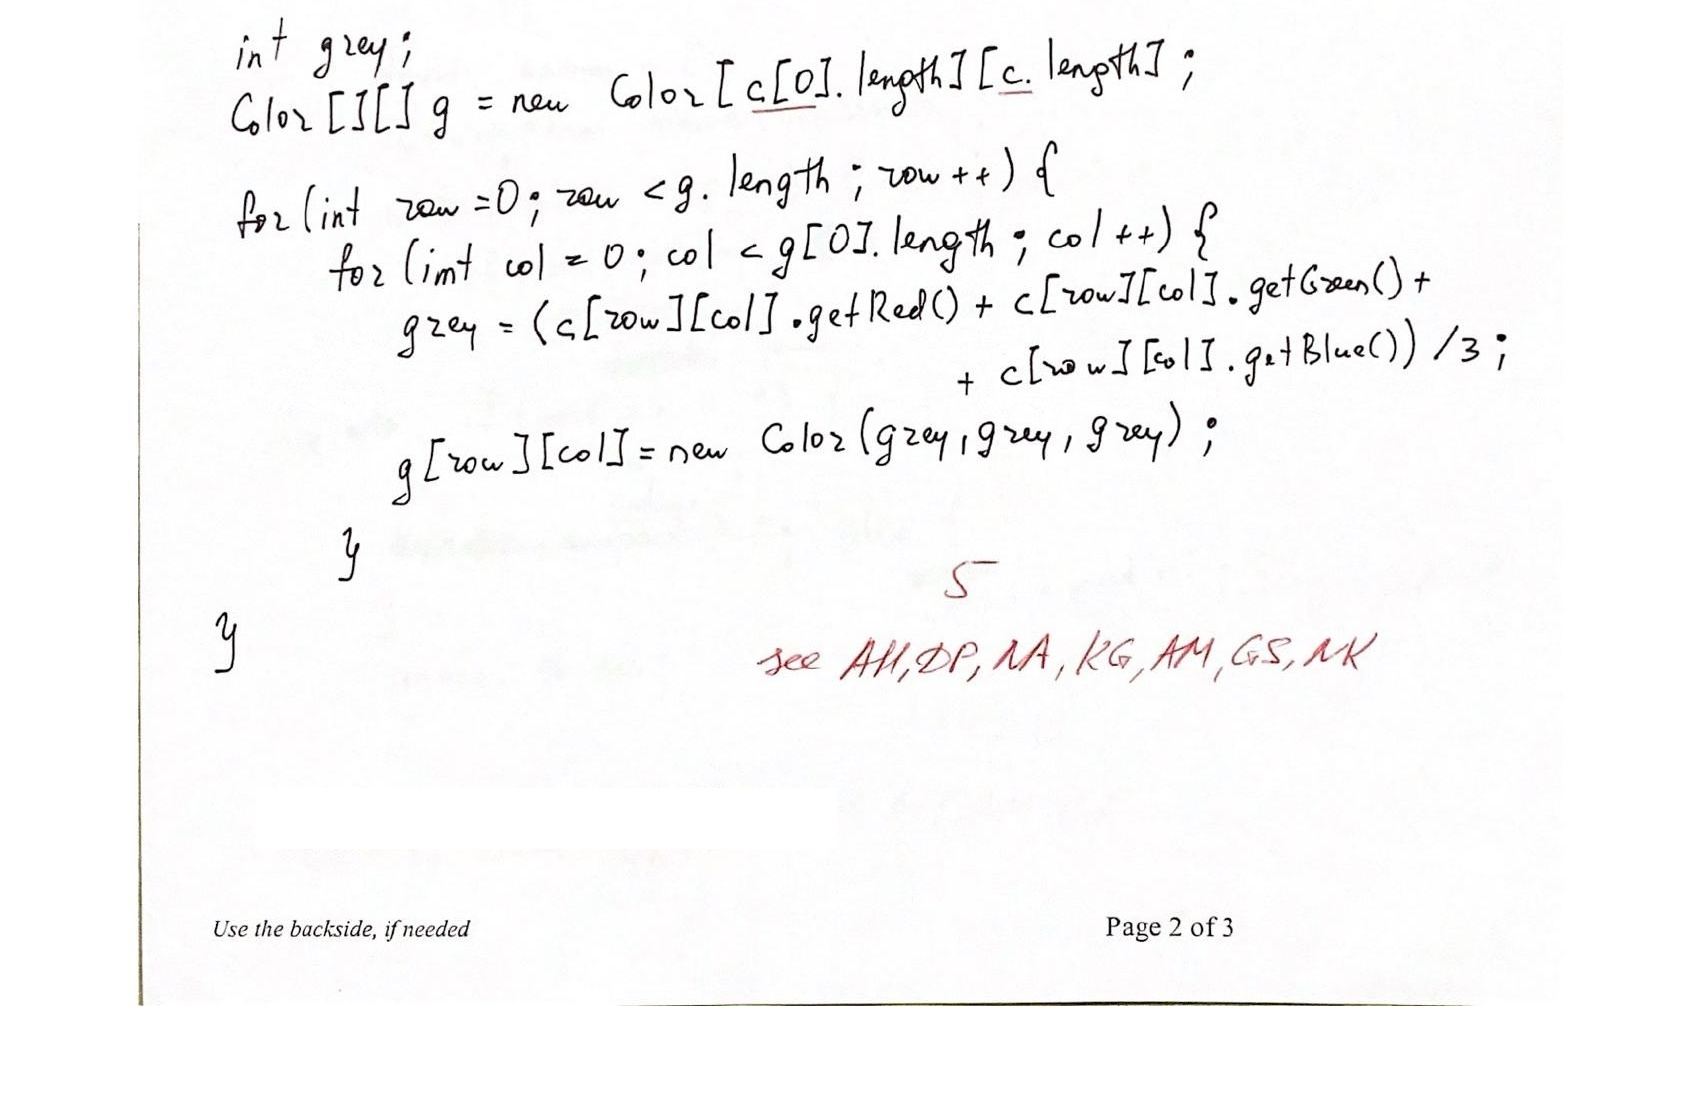 int grey;
Color [][] g = new Color [c[0].length][c.length];
for (int row=0; row < g.length; row++) {
for (int col = 0; col < g[0].length; col++) {
grey = (c[row][col].getRed() + c[row][col].getGreen() +
+ c[row][col].getBlue()) /3;
g[row][col] = new Color (grey, grey, grey);
}
5
}
see AH, DP, NA, KG, AM, GS, NK
Use the backside, if needed
Page 2 of 3